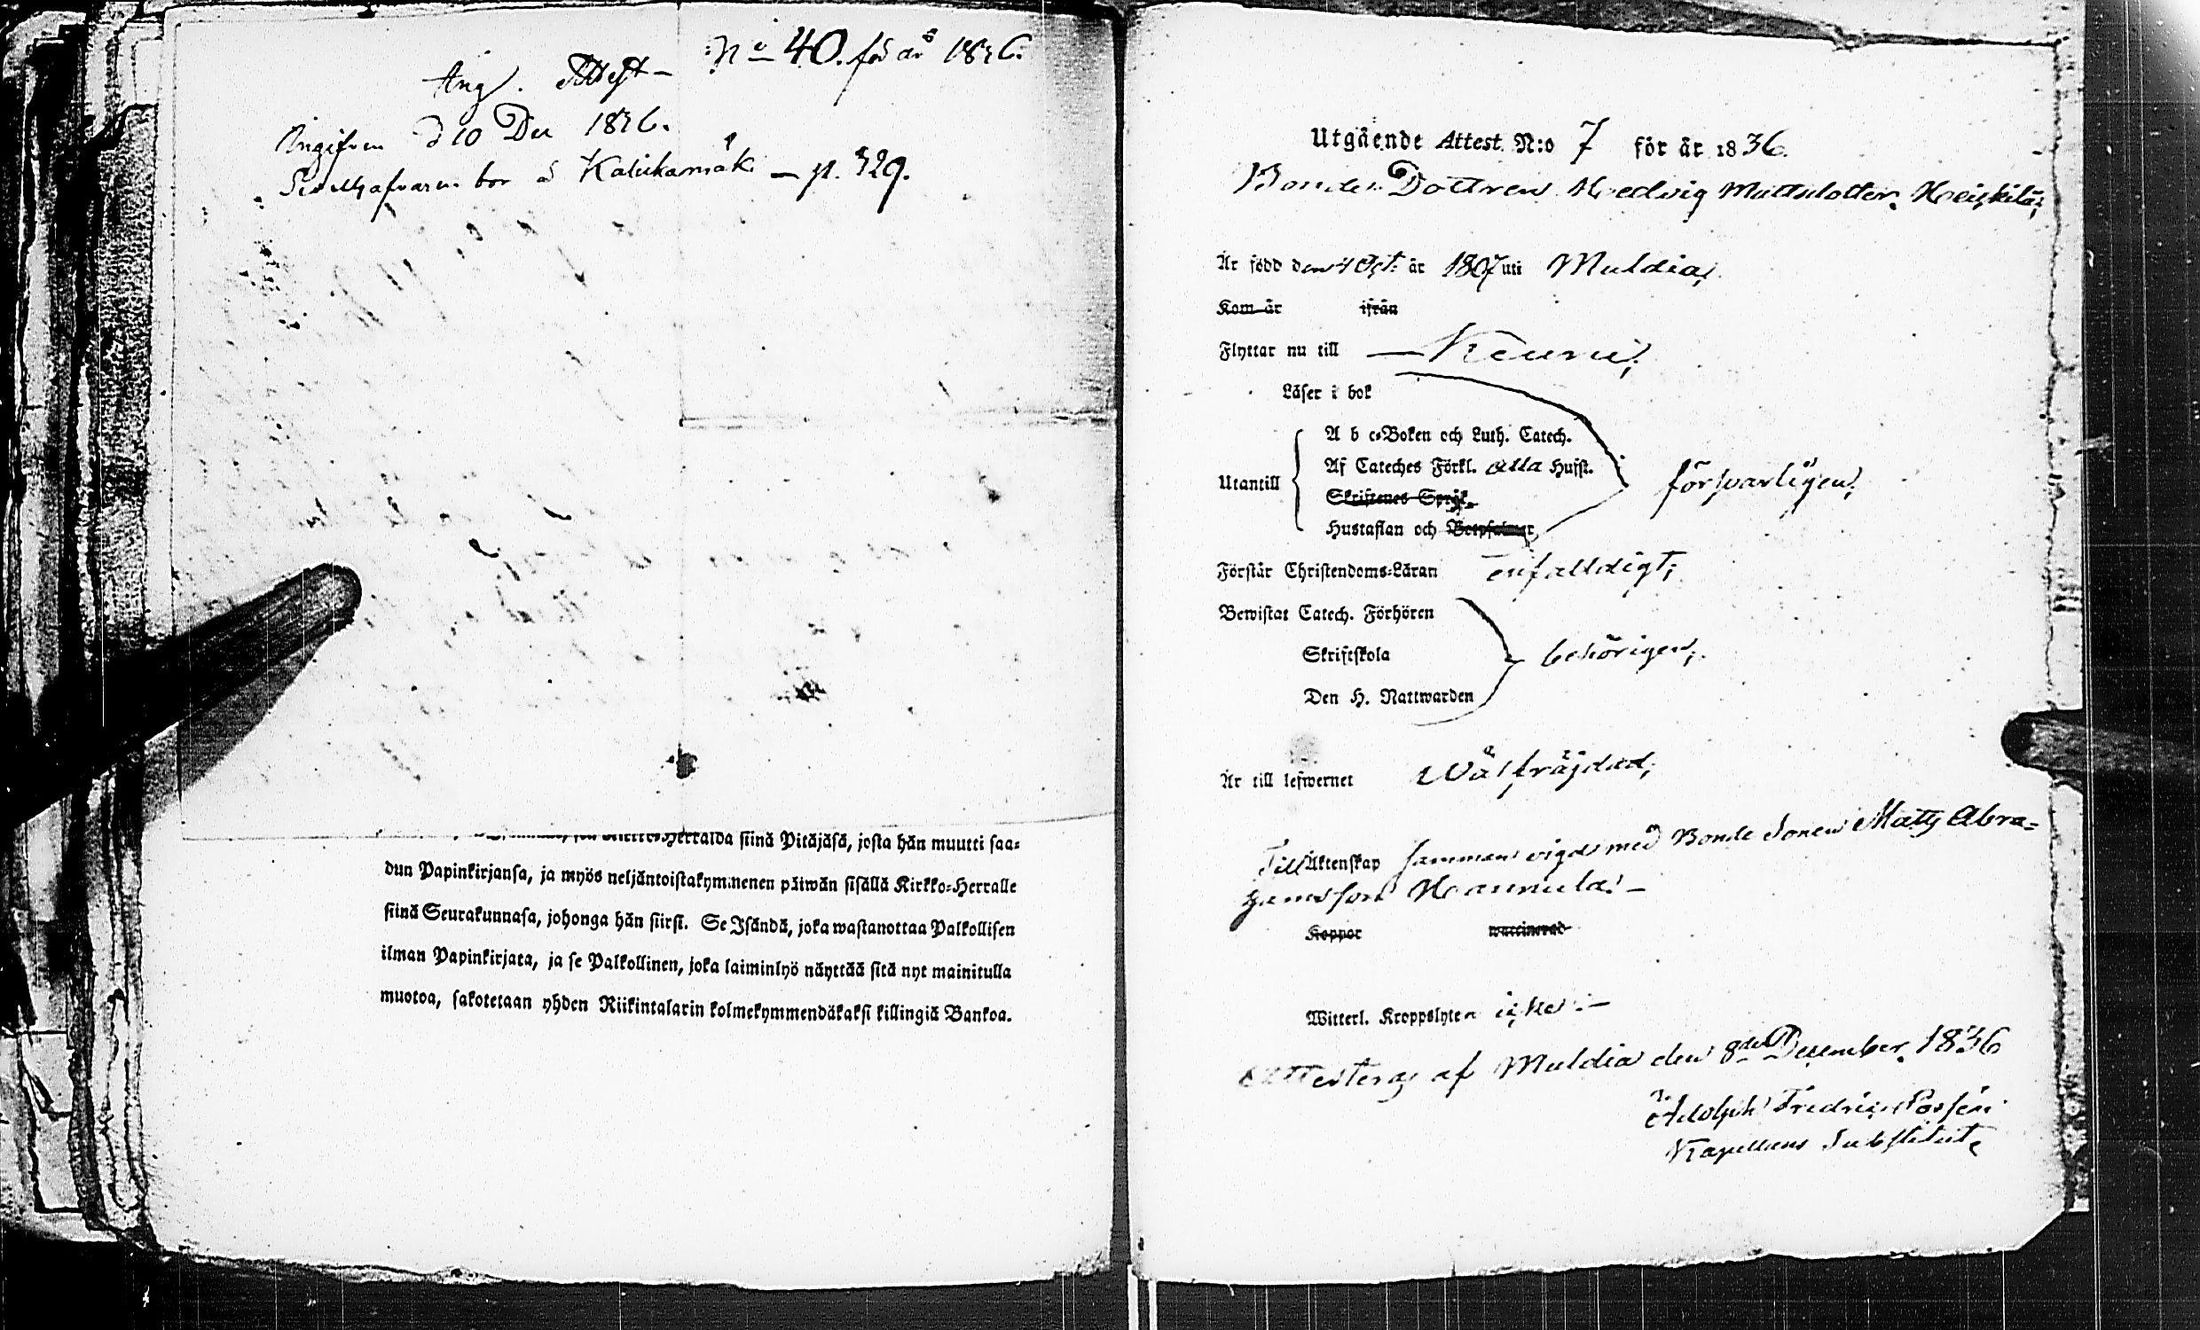 Ang. Attest N:o 40. för år 1836.
Ingifven d 10 Dec 1836.
bor å p. 329.
siinä Pitäjäsä, josta hän muutti saa-
dun Papinkirjansa, ja myös neljäntoistakymmenen päiwän sisällä Kirkko-Herralle
siinä Seurakunnasa, johonga hän siirsi. Se Isändä, joka wastanottaa Palkollisen
ilman Papinkirjata, ja se Palkollinen, joka laiminlyö näyttää sitä nyt mainitulla
muotoa, sakotetaan yhden Riikintalarin kolmekymmendäkaksi killingiä Bankoa.
Utgående Attest N:o 7 för år 1836.
Bonde Dottren Hedvig Mattsdotter Heiskilä,
Är född den 4 Oct: år 1807 uti Muldia,
Kom år ifrån
Flyttar nu till — Keuru,
Läser i bok
A b c-Boken och Luth. Catech.
Af Cateches Förkl. alla Hufst.
Utantill försvarligen,
Skriftenes Språk
Hustaflan och Botpsalmer
Förstår Christendoms-Läran enfalldigt,
Bewistat Catech. Förhören
Skriftskola behörigen,
Den H. Nattwarden
Är till lefwernet Wälfräjdad,
Till Äktenskap sammanvigd med Bonde Sonen Matts Abra-
hamsson Hannula. —
Koppor waccinerad
Witterl. Kroppslyten icke. —
Attesteras af Muldia den 8de December 1836
Adolph Fredric
Kapellans Substitut,